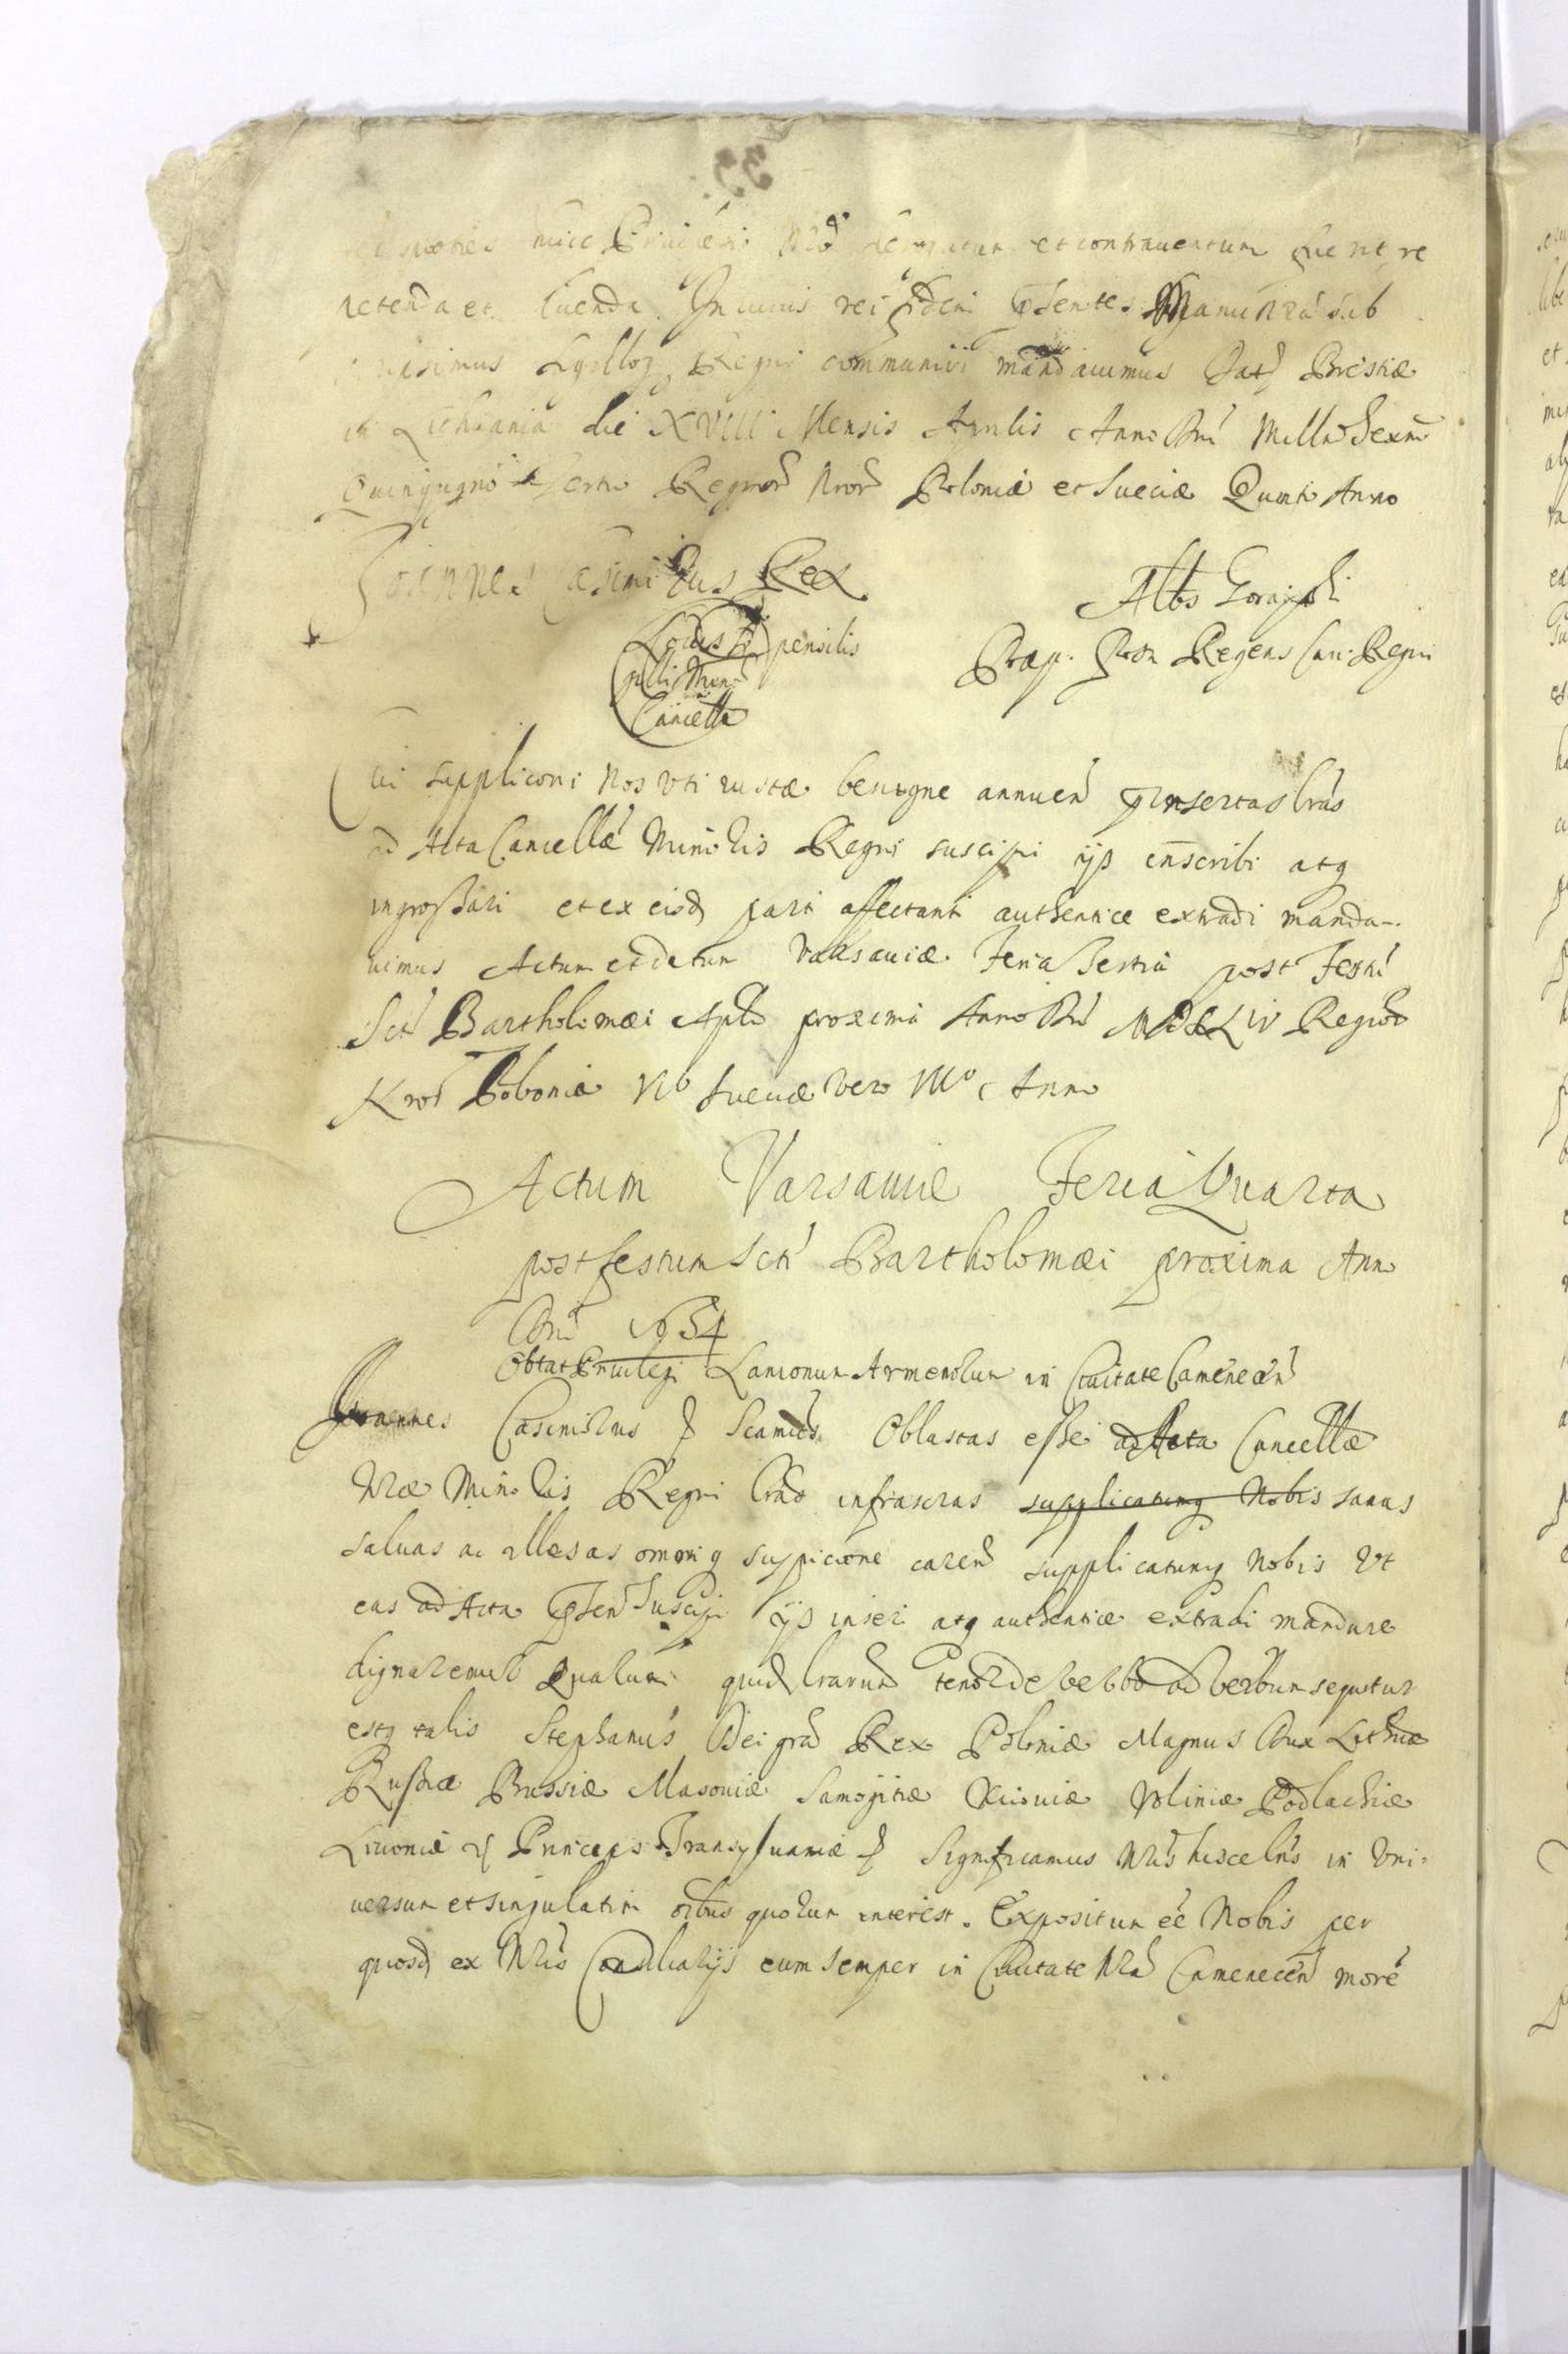 huic Privilegio et contraventum fuerit re
petenda et luenda. In cuius rei fidem pñtes Manu nrã sub
Sigilloq Regni communiri mandavimus Datt Brestiæ
in Lithvania die XVIII Mensis Aprilis Anno Dni Millmo Sexmo
Quinqugmo tertio Regnor Nror Poloniæ et Sueciæ Quinto Anno
Joannes Casimirus Rex
Albs Goraiski
Locus Si pensilis
Præp. Regens Can: Regni
gilli Minr
Cancellæ
Cui supplicõni Nos uti iustæ benigne annuen p̃insertas lrãs
ad Acta Cancellæ Minoris Regni suscipi ijs inscribi atq
ingrossari et ex eisd parti affectanti authentice extradi manda-
vimus Actum et datum Varsaviæ Feria Tertia post Festũ
Scti Bartholomæi Apli proxima Anno Dni MDCLIV Regnor
Nror Poloniæ VIo Sueciæ vero VIIo Anno
Actum Varsaviæ Feria Quarta
post festum Scti Bartholomæi proxima Anno
Dni 1654
Oblat Privilegi Lanionum Armenorum in Civitate Camenecen
Joannes Casimirus Oblatas esse ad Acta Cancellæ
Nræ Minoris Regni lras infrascras supplicatumq Nobis sanas
salvas ac illesas omniq suspicione caren supplicatumq Nobis ut
eas ad Acta p̃sen suscipi ijs inseri atq authentice extradi mandare
dignaremur Qualium quid lrarum tenor de verbo ad verbum sequitur
estq talis Stephanus Dei gra Rex Poloniæ Magnus Dux Lithuæ
Russiæ Prussiæ Masoviæ Samogitiæ Kijoviæ Voliniæ Podlachiæ
Livoniæ Princeps Transylvaniæ Significamus Nris hisce lris in Uni-
versum et singulatim oibus quorum interest. Expositum eẽ Nobis per
quosd ex Nris Consiliarijs eum semper in Civitate Nra Camenecen morẽ